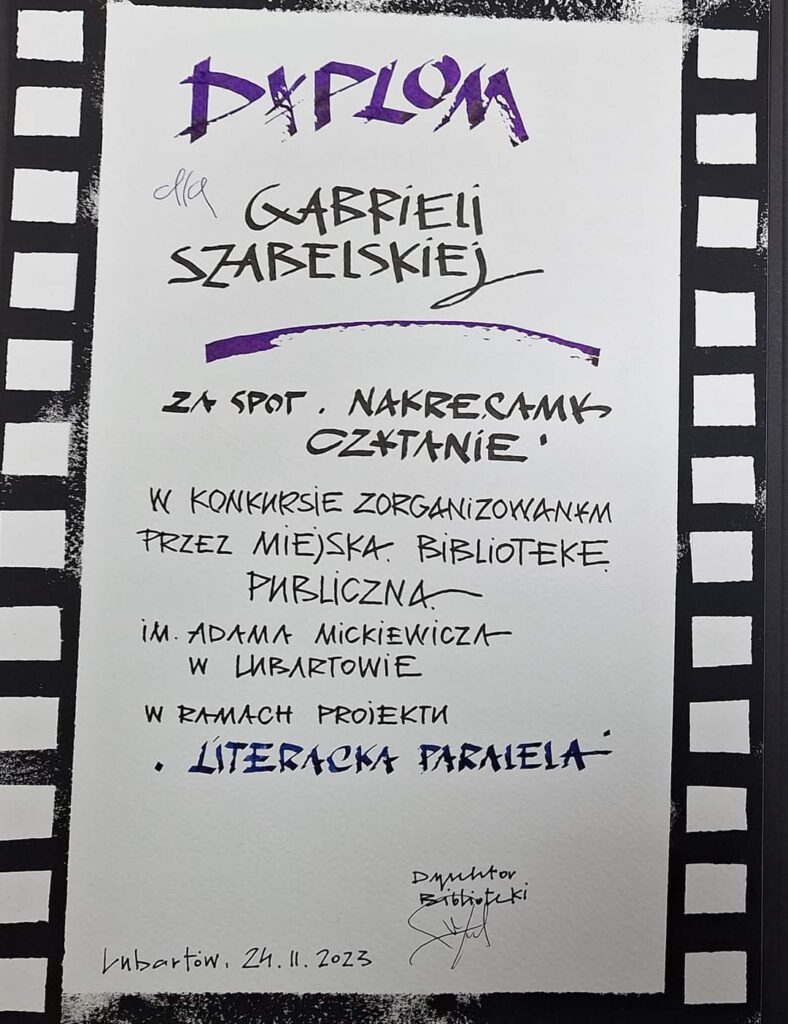 DYPLOM
dla
GABRIELI
SZABELSKIEJ
ZA SPOT . NAKRĘCAMY
CZYTANIE .
W KONKURSIE ZORGANIZOWANYM
PRZEZ MIEJSKĄ BIBLIOTEKĘ
PUBLICZNĄ
IM. ADAMA MICKIEWICZA
W LUBARTOWIE
W RAMACH PROJEKTU
. LITERACKA PARALELA .
Dyrektor
Biblioteki
Lubartów, 24.11.2023